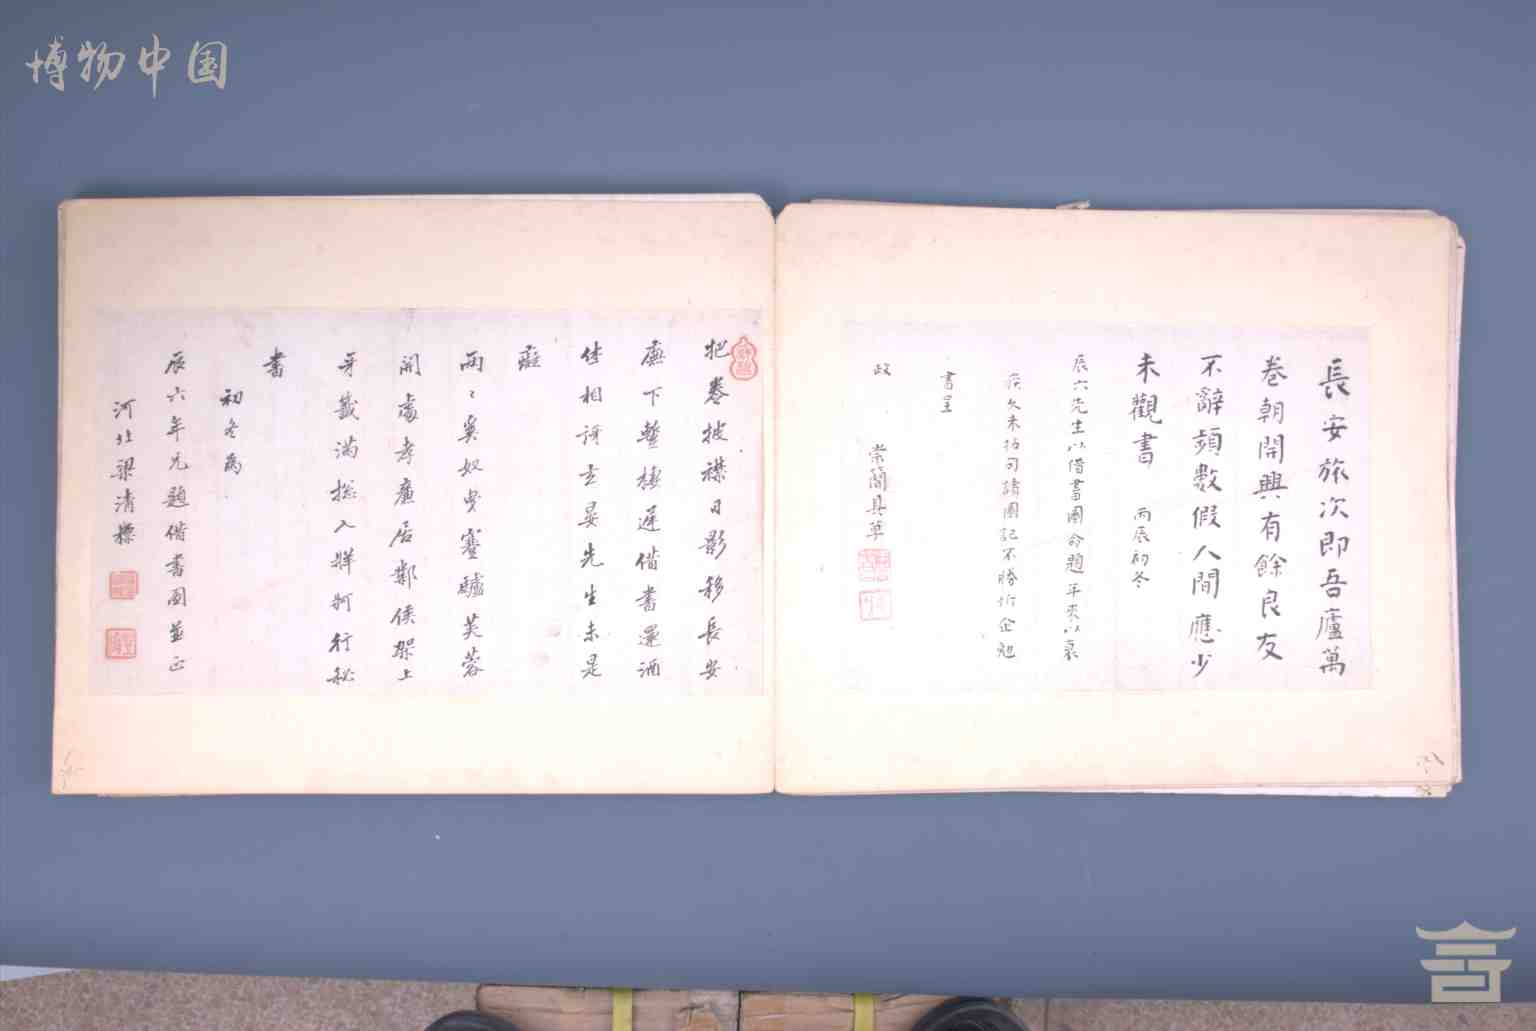 博物中国
長安旅次即吾廬萬
卷朝開興有餘良友
不辭頻數假人間應少
未觀書 丙辰初冬
辰六先生以借書圖命題年來以衰
疾久未拈句諸圖記不勝
書呈
政
崇簡具草
把卷披襟日影移長安
廡下暫棲遲借書還酒
佳相謔玄晏先生未是
癡
兩兩奚奴曳蹇驢芙蓉
開處孝廉居鄴侯架上
牙籤滿總入牂牁行秘
書
初冬為
辰六年兄題借書圖並正
河北梁清標